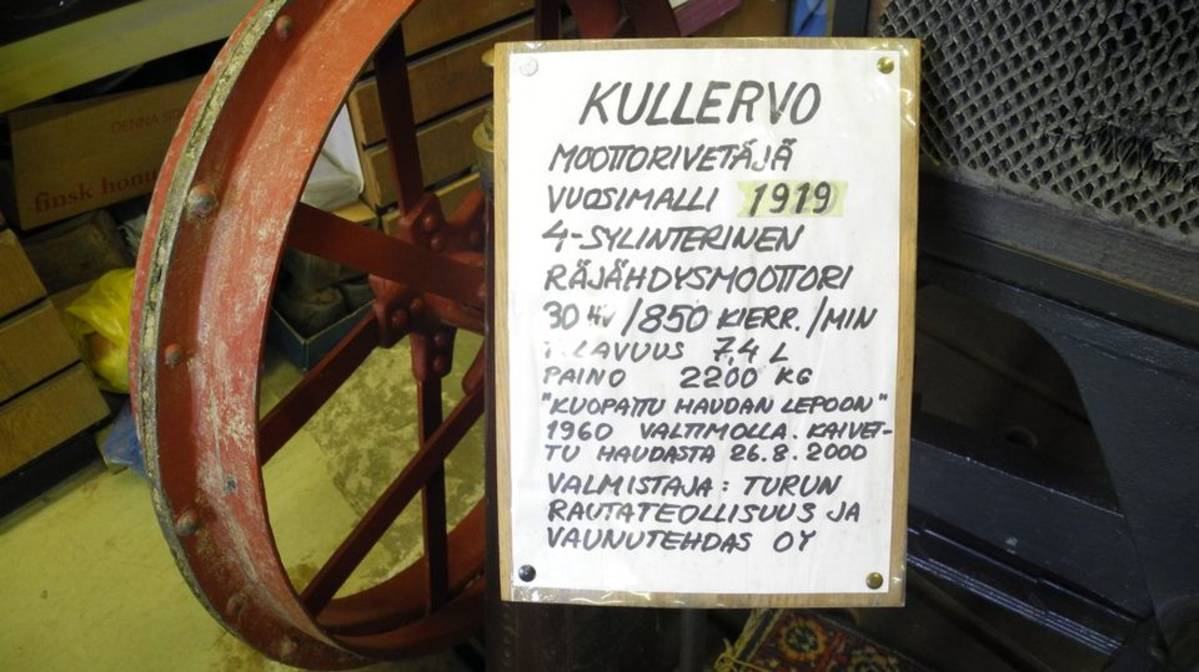 DENNA
finsk honu
KULLERVO
MOOTTORIVETÄJÄ
VUOSIMALLI 1919
4-SYLINTERINEN
RÄJÄHDYSMOOTTORI
30 HV/850 KIERR./MIN
TILAVUUS 7,4 L
PAINO 2200 KG
"KUOPATTU HAUDAN LEPOON"
1960 VALTIMOLLA. KAIVET-
TU HAUDASTA 26.8.2000
VALMISTAJA: TURUN
RAUTATEOLLISUUS JA
VAUNUTEHDAS OY